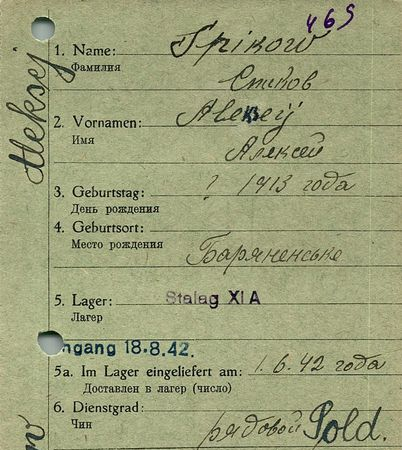 469
1. Name: Spikow
Фамилия
Спиков
2. Vornamen: Aleksej
Имя
Алексей
3. Geburtstag: ? 1913 года
День рождения
4. Geburtsort:
Место рождения
5. Lager: Stalag XI A
Лагер
ngang 18.8.42.
5a. Im Lager eingeliefert am: 1.6.42 года
Доставлен в лагер (число)
6. Dienstgrad:
Чин
рядовой Sold.
Aleksej